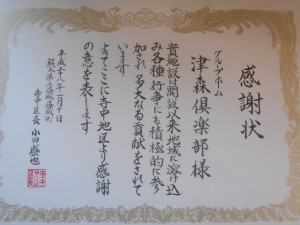 感謝状
グループホーム
津森倶楽部様
貴施設は開設以来地域に溶け込
み各種行事にも積極的に参
加され多大なる貢献をされて
います
よってここに寺中地区より感謝
の意を表します
平成二十八年一月十日
熊本県上益城郡益城町
寺中区長 小田